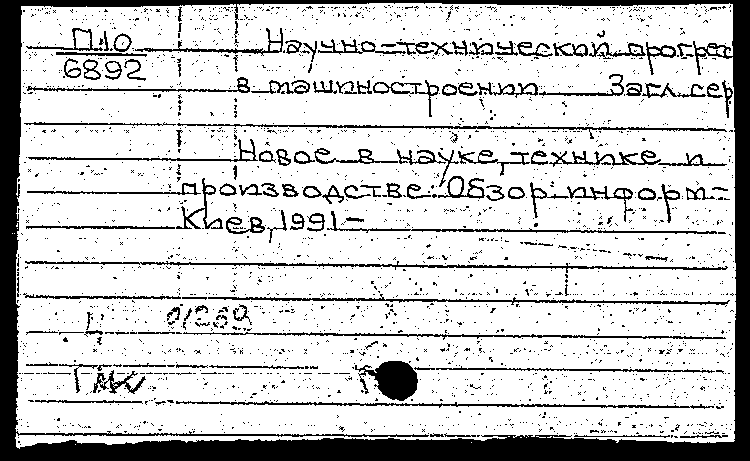 П10
6892
Научно-технический прогрес
в машиностроении. Загл. сер
Новое в науке, технике и
производстве: Обзор. информ-
Киев, 1991-
Ч 01269